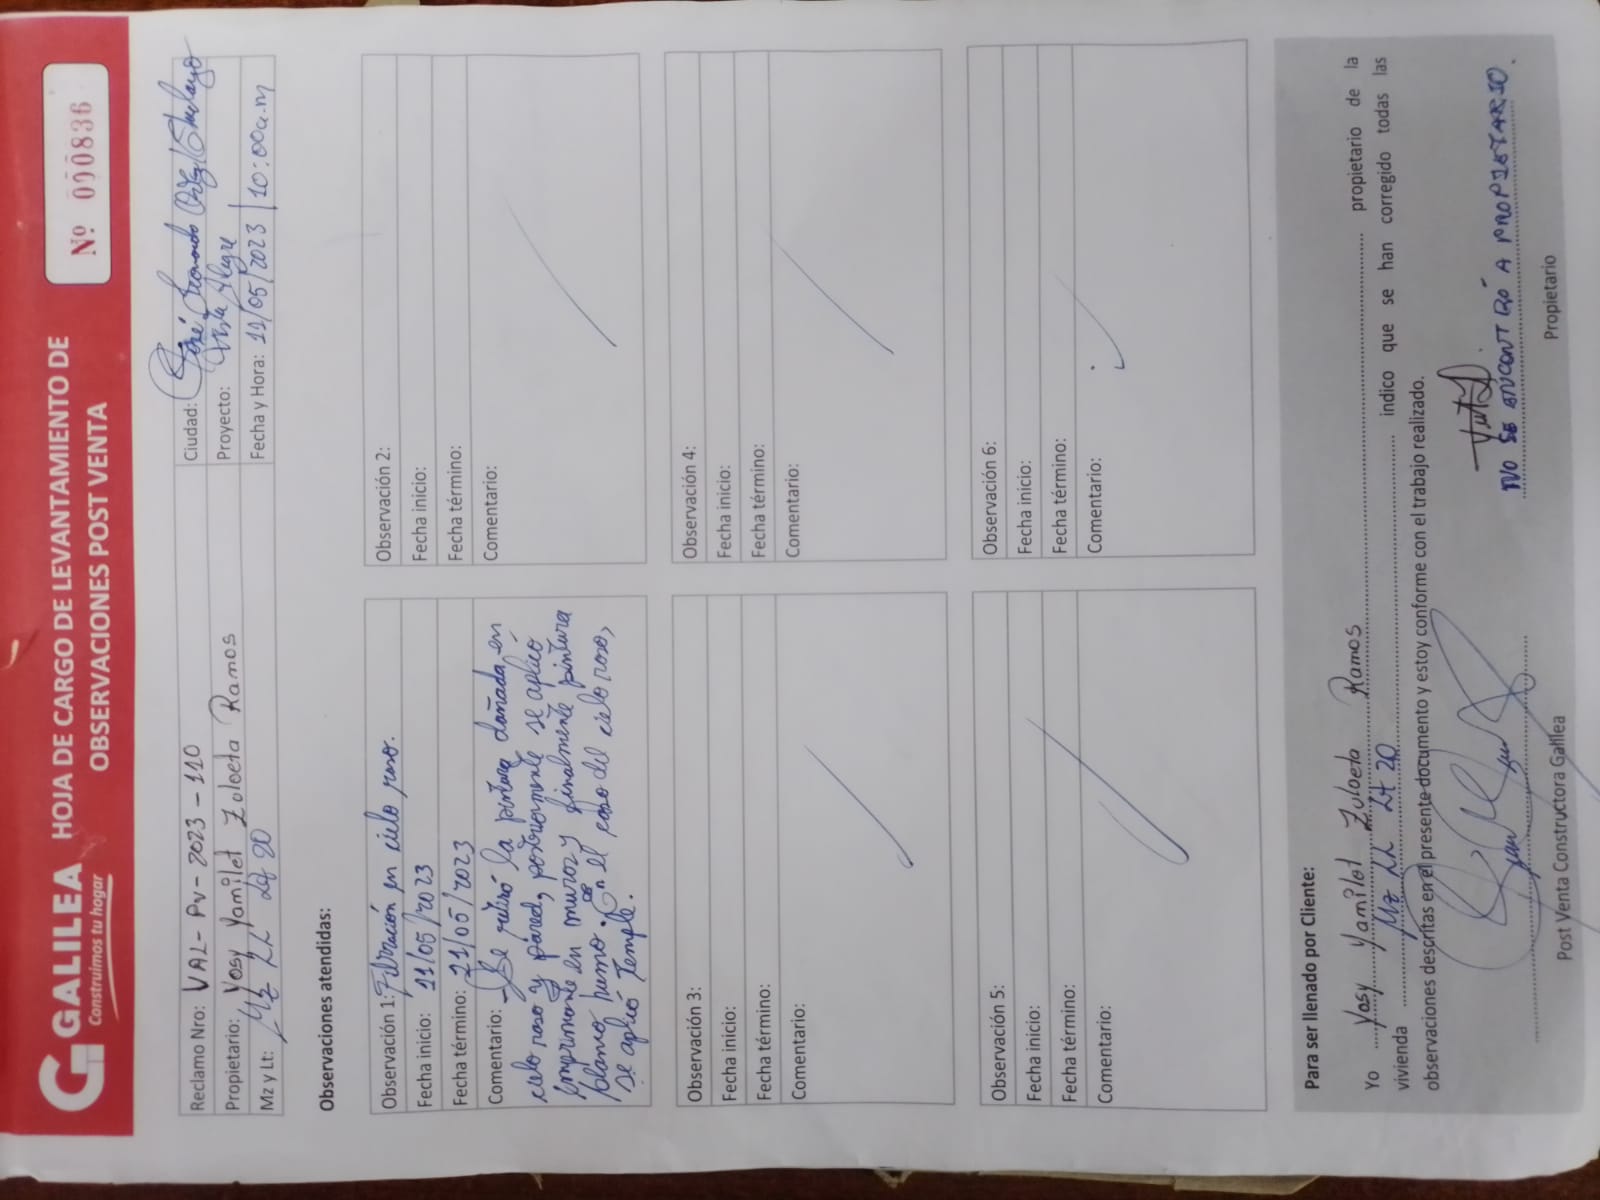 GALILEA
Construimos tu hogar
HOJA DE CARGO DE LEVANTAMIENTO DE
OBSERVACIONES POST VENTA
Nº 000836
Reclamo Nro: VAL- PV- 2023 - 110
Ciudad: José Leonardo Ortiz / Chiclayo
Propietario: Yosy Yamilet Zuloeta Ramos
Proyecto: Vista Alegre
Mz y Lt: Mz LL Lt 20
Fecha y Hora: 11/05/2023 | 10:00 a.m
Observaciones atendidas:
Observación 1: Filtración en cielo raso.
Fecha inicio: 11/05/2023
Fecha término: 21/05/2023
Comentario: - Se retiró la pintura dañada en
cielo raso y pared, posteriormente se aplicó
imprimante en muros y finalmente pintura
blanco humo. En el caso del cielo raso,
se aplicó temple.
Observación 2:
Fecha inicio:
Fecha término:
Comentario:
Observación 3:
Fecha inicio:
Fecha término:
Comentario:
Observación 4:
Fecha inicio:
Fecha término:
Comentario:
Observación 5:
Fecha inicio:
Fecha término:
Comentario:
Observación 6:
Fecha inicio:
Fecha término:
Comentario:
Para ser llenado por Cliente:
Yo Yosy Yamilet Zuloeta Ramos propietario de la
vivienda Mz LL Lt 20 indico que se han corregido todas las
observaciones descritas en el presente documento y estoy conforme con el trabajo realizado.
NO SE ENCONTRÓ A PROPIETARIO.
Post Venta Constructora Galilea
Propietario